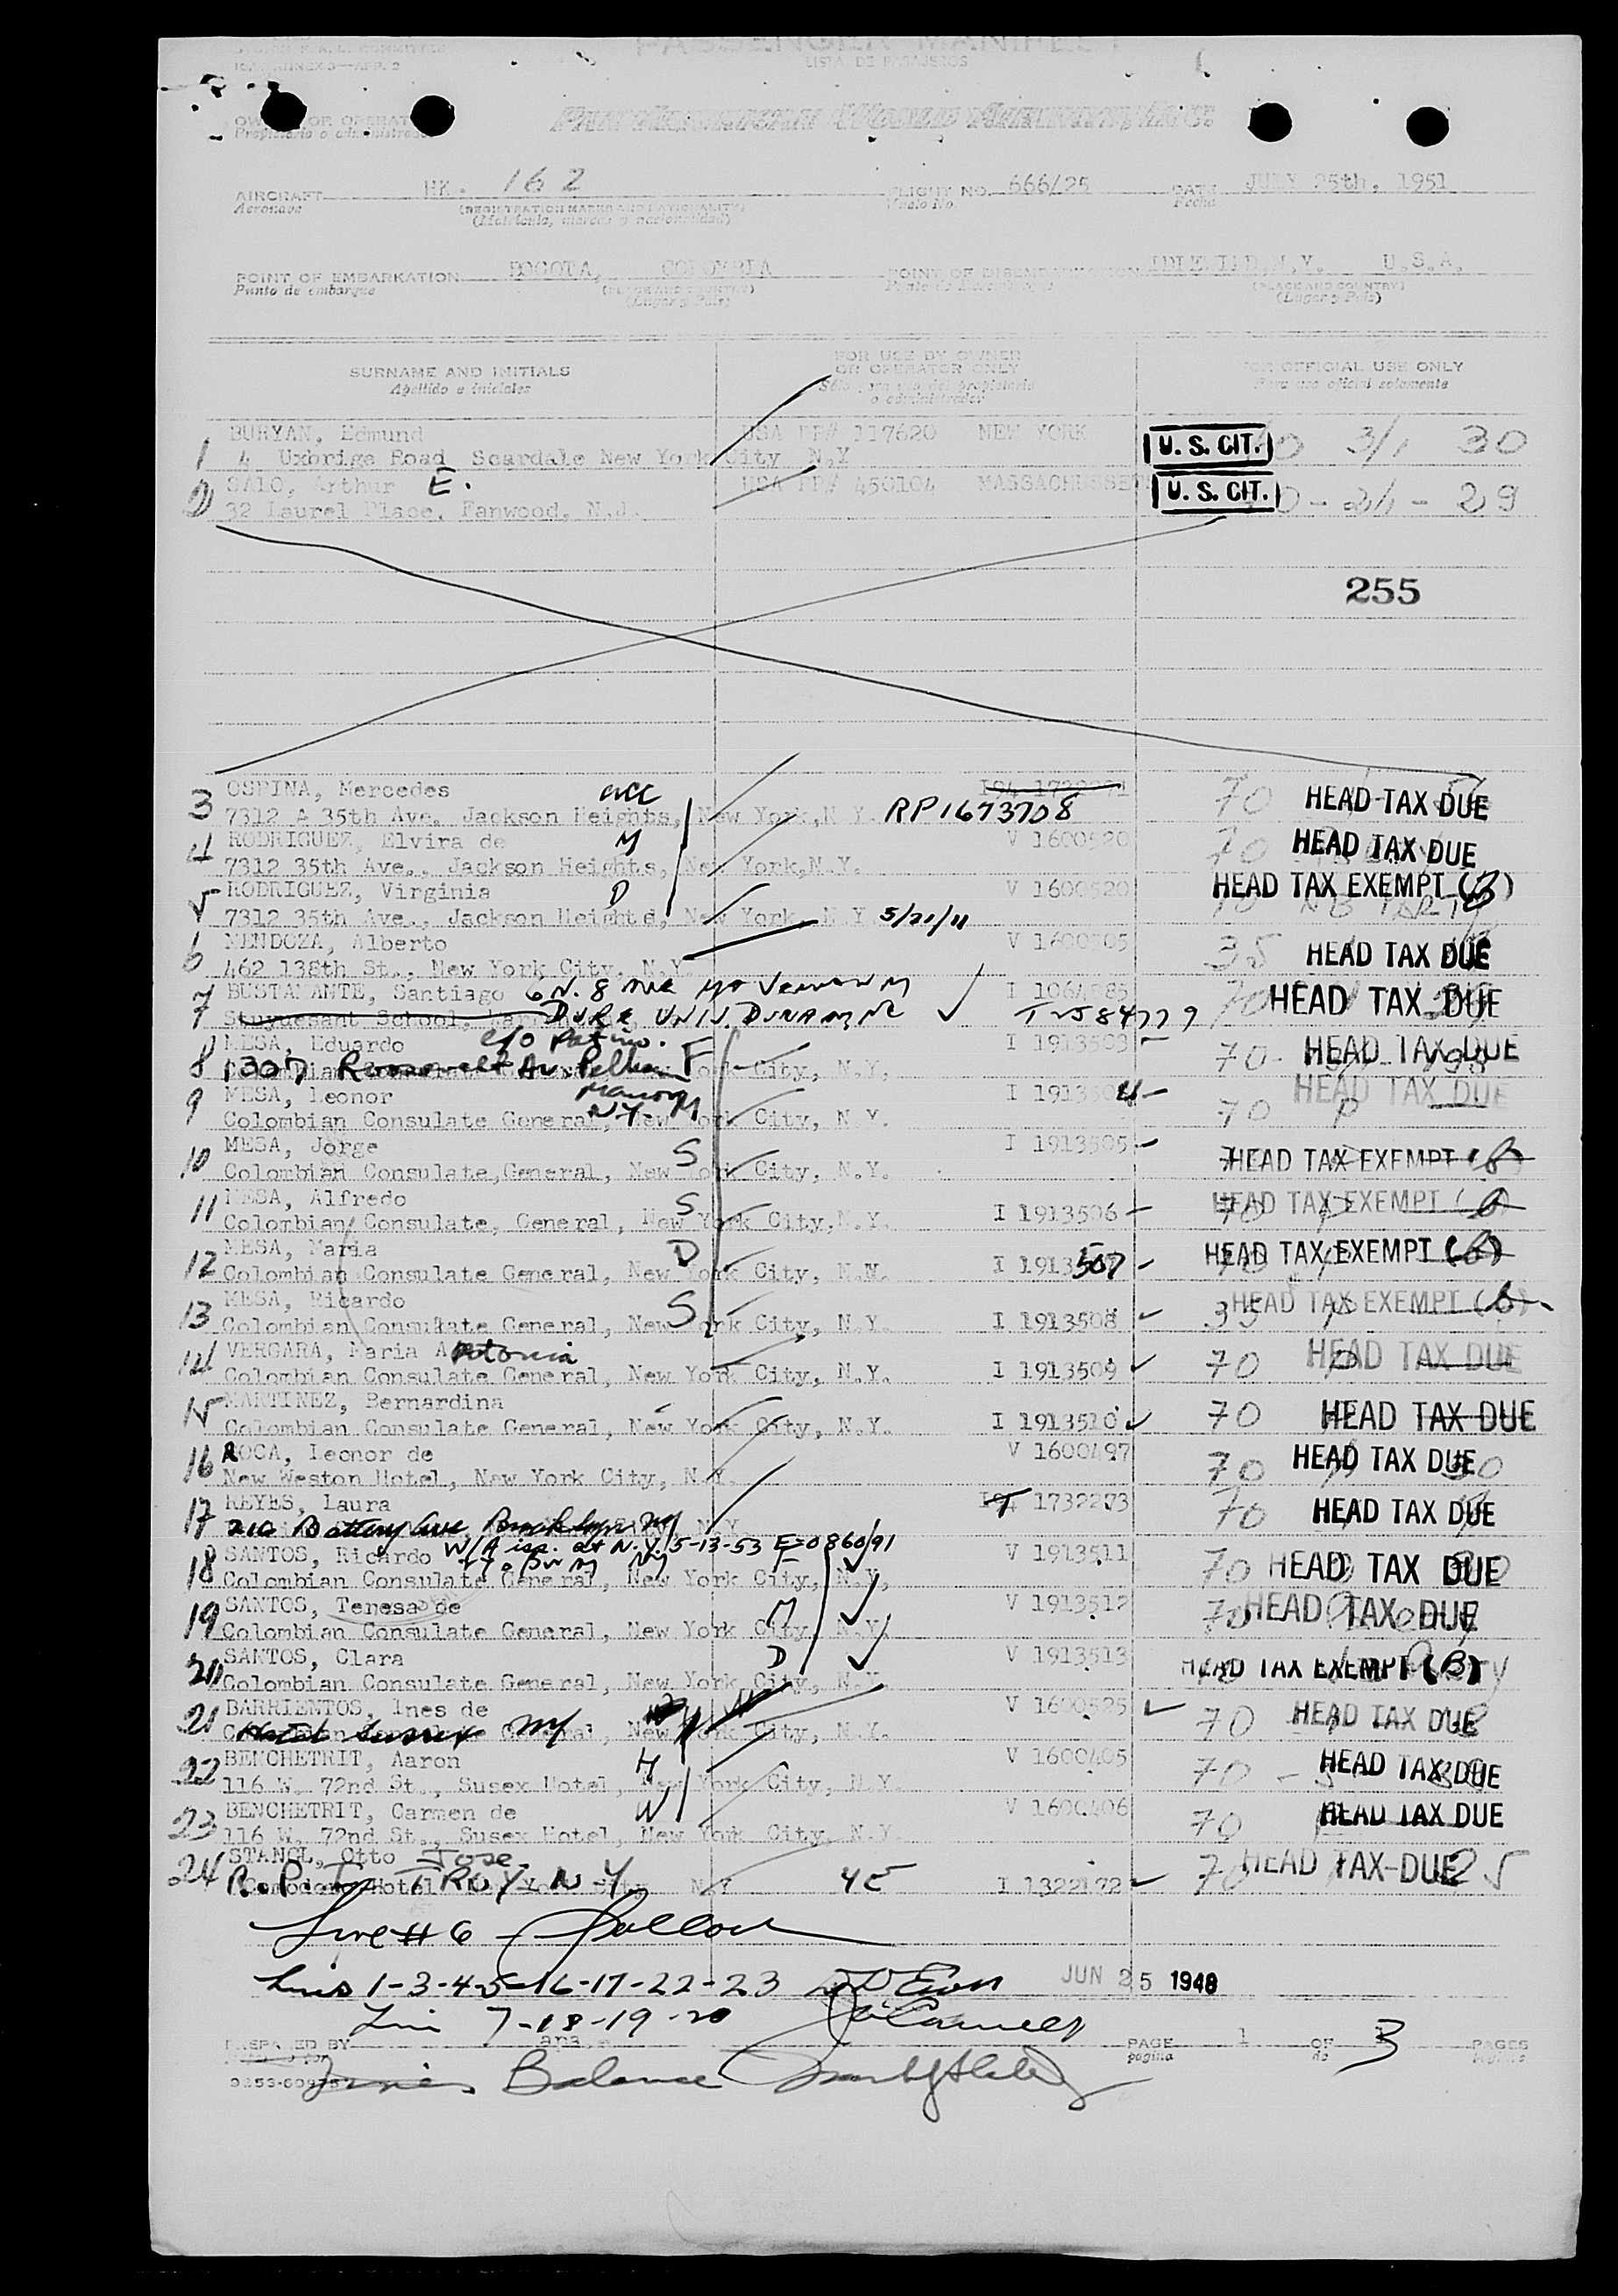 PASSENGER MANIFEST
LISTA DE PASAJEROS
ICAO ANNEX 9—APP. 2
OWNER OR OPERATOR
Propietario o administrador
Pan American World Airways, Inc.
AIRCRAFT HK. 162 FLIGHT NO. 666/25 DATE JULY 25th, 1951
Aeronave (REGISTRATION MARKS AND NATIONALITY) Vuelo No. Fecha
(Matrícula, marcas y nacionalidad)
POINT OF EMBARKATION BOGOTA, COLOMBIA POINT OF DISEMBARKATION IDLEWILD, N.Y. U.S.A.
Punto de embarque (PLACE AND COUNTRY) (PLACE AND COUNTRY)
(Lugar y País) (Lugar y País)
SURNAME AND INITIALS FOR USE BY OWNER OR OPERATOR ONLY FOR OFFICIAL USE ONLY
Apellido e iniciales Sólo para uso del propietario o administrador Para uso oficial solamente
1 BURYAN, Edmund USA PP# 117620 NEW YORK U. S. CIT. 3/1 30
4 Uxbrige Road Scardale New York City N.Y
2 SALO, Arthur E. USA PP# 450104 MASSACHUSSETS U. S. CIT. 29
32 Laurel Place, Fanwood, N.J.
255
3 OSPINA, Mercedes acc 70 HEAD TAX DUE
7312 A 35th Ave. Jackson Heights, New York, N.Y. RP1673708
4 RODRIGUEZ, Elvira de M V 1600520 70 HEAD TAX DUE
7312 35th Ave., Jackson Heights, New York, N.Y.
5 RODRIGUEZ, Virginia D V 1600520 HEAD TAX EXEMPT (B)
7312 35th Ave., Jackson Heights, New York, N.Y 5/21/11
6 MENDOZA, Alberto V 1600505 35 HEAD TAX DUE
462 138th St., New York City, N.Y.
7 BUSTAMANTE, Santiago 6 N. 8 Ave Mt Vernon I 1064585 70 HEAD TAX DUE
Stuyvesant School, DUKE UNIV. DURAM, NC
8 MESA, Eduardo c/o Patino. F I 1913503 70 HEAD TAX DUE
1307 Roosevelt Av. Pelham Manor N.Y. City, N.Y.
9 MESA, Leonor M I 1913504 70 HEAD TAX DUE
Colombian Consulate General, New York City, N.Y.
10 MESA, Jorge S I 1913505 HEAD TAX EXEMPT (B)
Colombian Consulate, General, New York City, N.Y.
11 MESA, Alfredo S I 1913506 70 HEAD TAX EXEMPT (B)
Colombian Consulate, General, New York City, N.Y.
12 MESA, Maria D I 1913507 HEAD TAX EXEMPT (B)
Colombian Consulate General, New York City, N.N.
13 MESA, Ricardo S I 1913508 35 HEAD TAX EXEMPT (B)
Colombian Consulate General, New York City, N.Y.
14 VERGARA, Maria Antonia I 1913509 70 HEAD TAX DUE
Colombian Consulate General, New York City, N.Y.
15 MARTINEZ, Bernardina I 1913510 70 HEAD TAX DUE
Colombian Consulate General, New York City, N.Y.
16 ROCA, Leonor de V 1600497 70 HEAD TAX DUE
New Weston Hotel, New York City, N.Y.
17 REYES, Laura 1732273 70 HEAD TAX DUE
210 Battery Ave Brooklyn NY
W/A iss. at N.Y. 5-13-53 E-086091
18 SANTOS, Ricardo V 1913511 70 HEAD TAX DUE
Colombian Consulate General, New York City, N.Y,
19 SANTOS, Teresa de M V 1913512 70 HEAD TAX DUE
Colombian Consulate General, New York City, N.Y.
20 SANTOS, Clara D V 1913513 HEAD TAX EXEMPT (B)
Colombian Consulate General, New York City, N.Y.
21 BARRIENTOS, Ines de V 1600525 70 HEAD TAX DUE
Hotel Sussex NY General, New York City, N.Y.
22 BENCHETRIT, Aaron H V 1600405 70 HEAD TAX DUE
116 W. 72nd St., Susex Hotel, New York City, N.Y
23 BENCHETRIT, Carmen de W V 1600406 70 HEAD TAX DUE
116 W. 72nd St., Susex Hotel, New York City, N.Y.
24 STANGL, Otto Jose. HEAD TAX DUE 25
R.P.I. TROY, N.Y. Comodore Hotel New York City N.Y I 1322172
Line # 6
Lines 1-3-4-5-16-17-22-23 JUN 25 1948
Lin 7-18-19-20
PREPARED BY ana PAGE 1 OF 3 PAGES
página de páginas
Lines Balance